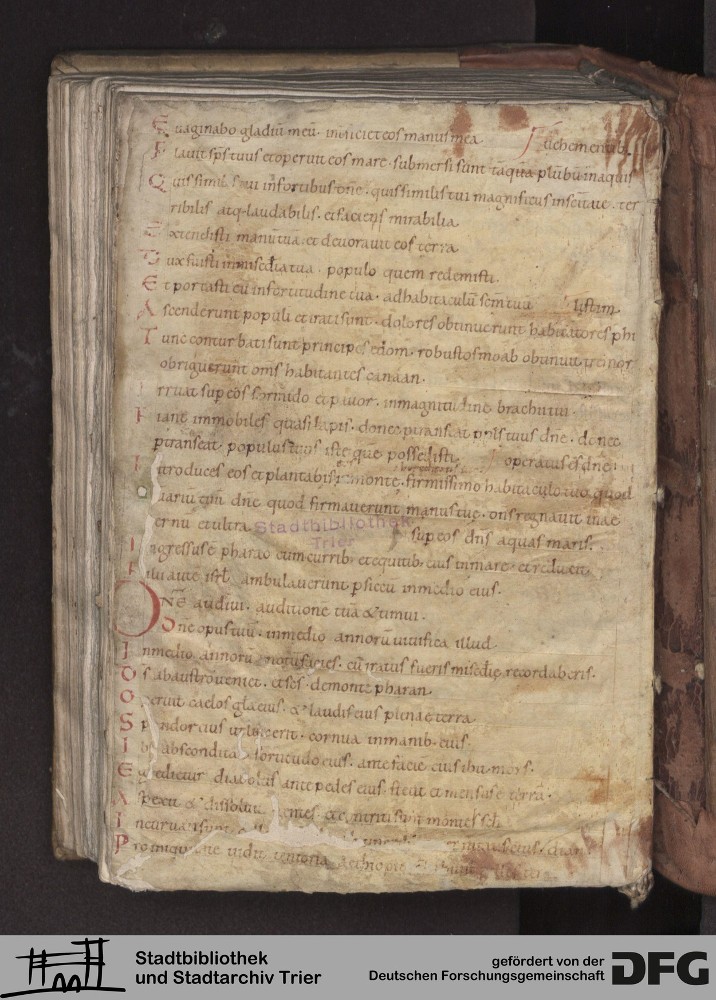 Euaginabo gladiũ meũ · int̃ficiet eos manus mea
uehementib;
Flauit sp̃s tuus et operuit eos mare · submersi sunt taquã plũbũ in aquis
Quis similis tui in fortibus dñe · quis similis tui magnificus in sc̃itate · ter
ribilis atq; laudabilis · et faciens mirabilia
Extendisti manũ tuã · et deuorauit eos terra
Dux fuisti in misc̃dia tua · populo quem redemisti ·
Et portasti eũ in fortitudine tua · ad habitaculũ sc̃m tuũ
listim
Ascenderunt populi et irati sunt · dolores obtinuerunt habitatores phi
Tunc conturbati sunt principes edom · robustos moab obtinuit tremor
obriguerunt om̃s habitantes canaan ·
Irruat sup eos formido et pauor · in magnitudine brachii tui ·
Fiant immobiles quasi lapis · donec ptranseat ppls tuus dñe · donec
ptranseat populus tuus iste quẽ possedisti
operatus es dñe
Introduces eos et plantabis · monte · firmissimo habitaculo tuo quod
tuariũ tuũ dñe quod firmauerunt manus tuę · dñs regnauit in ae
ternũ et ultra
sup eos dñs aquas maris ·
Ingressus ẽ pharao cum currib; et equitib; eius in mare · et reduxit
Filii autẽ isrl̃ ambulauerunt p siccũ in medio eius ·
DÑE audiui · auditione tuã & timui ·
Dñe opus tuũ · in medio annorũ uiuifica illud
In medio annorũ notũ facies · cũ iratus fueris misc̃die recordaberis ·
Ds̃ ab austro ueniet · et sc̃s · de monte pharan
Operuit caelos gla eius · & laudis eius plena ẽ terra
Splendor eius ut lux erit · cornua in manib; eius
Ibi abscondita ẽ fortitudo eius · ante faciẽ eius ibit mors ·
Egredietur diabolus ante pedes eius · stetit et mensus ẽ terrã ·
Aspexit & dissoluit gentes · & contriti sunt montes scl̃i
Incuruati sunt
Pro iniquitate uidi tentoria aethiopie
Stadtbibliothek
Trier
Stadtbibliothek
und Stadtarchiv Trier
gefördert von der
Deutschen Forschungsgemeinschaft
DFG